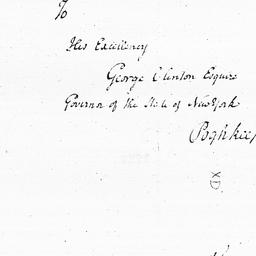 To
His Excellency
George Clinton Esquire
Governor of the State of New York